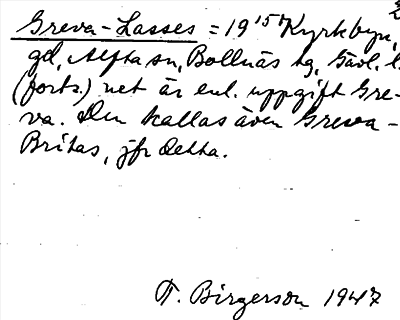 2
Greva-Lasses = 19¹⁵ Kyrkbyn,
gd, Alfta sn, Bollnäs tg, Gävl. l.
(forts.) net är enl. uppgift Gre-
va. Den kallas även Greva-
Britas, jfr detta.
T. Birgerson 1947